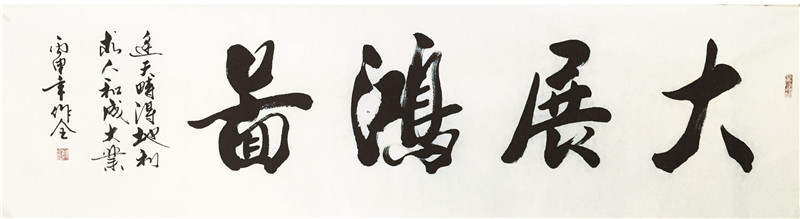 大展鴻啚
逢天時得地利
求人和成大業
丙申年作全